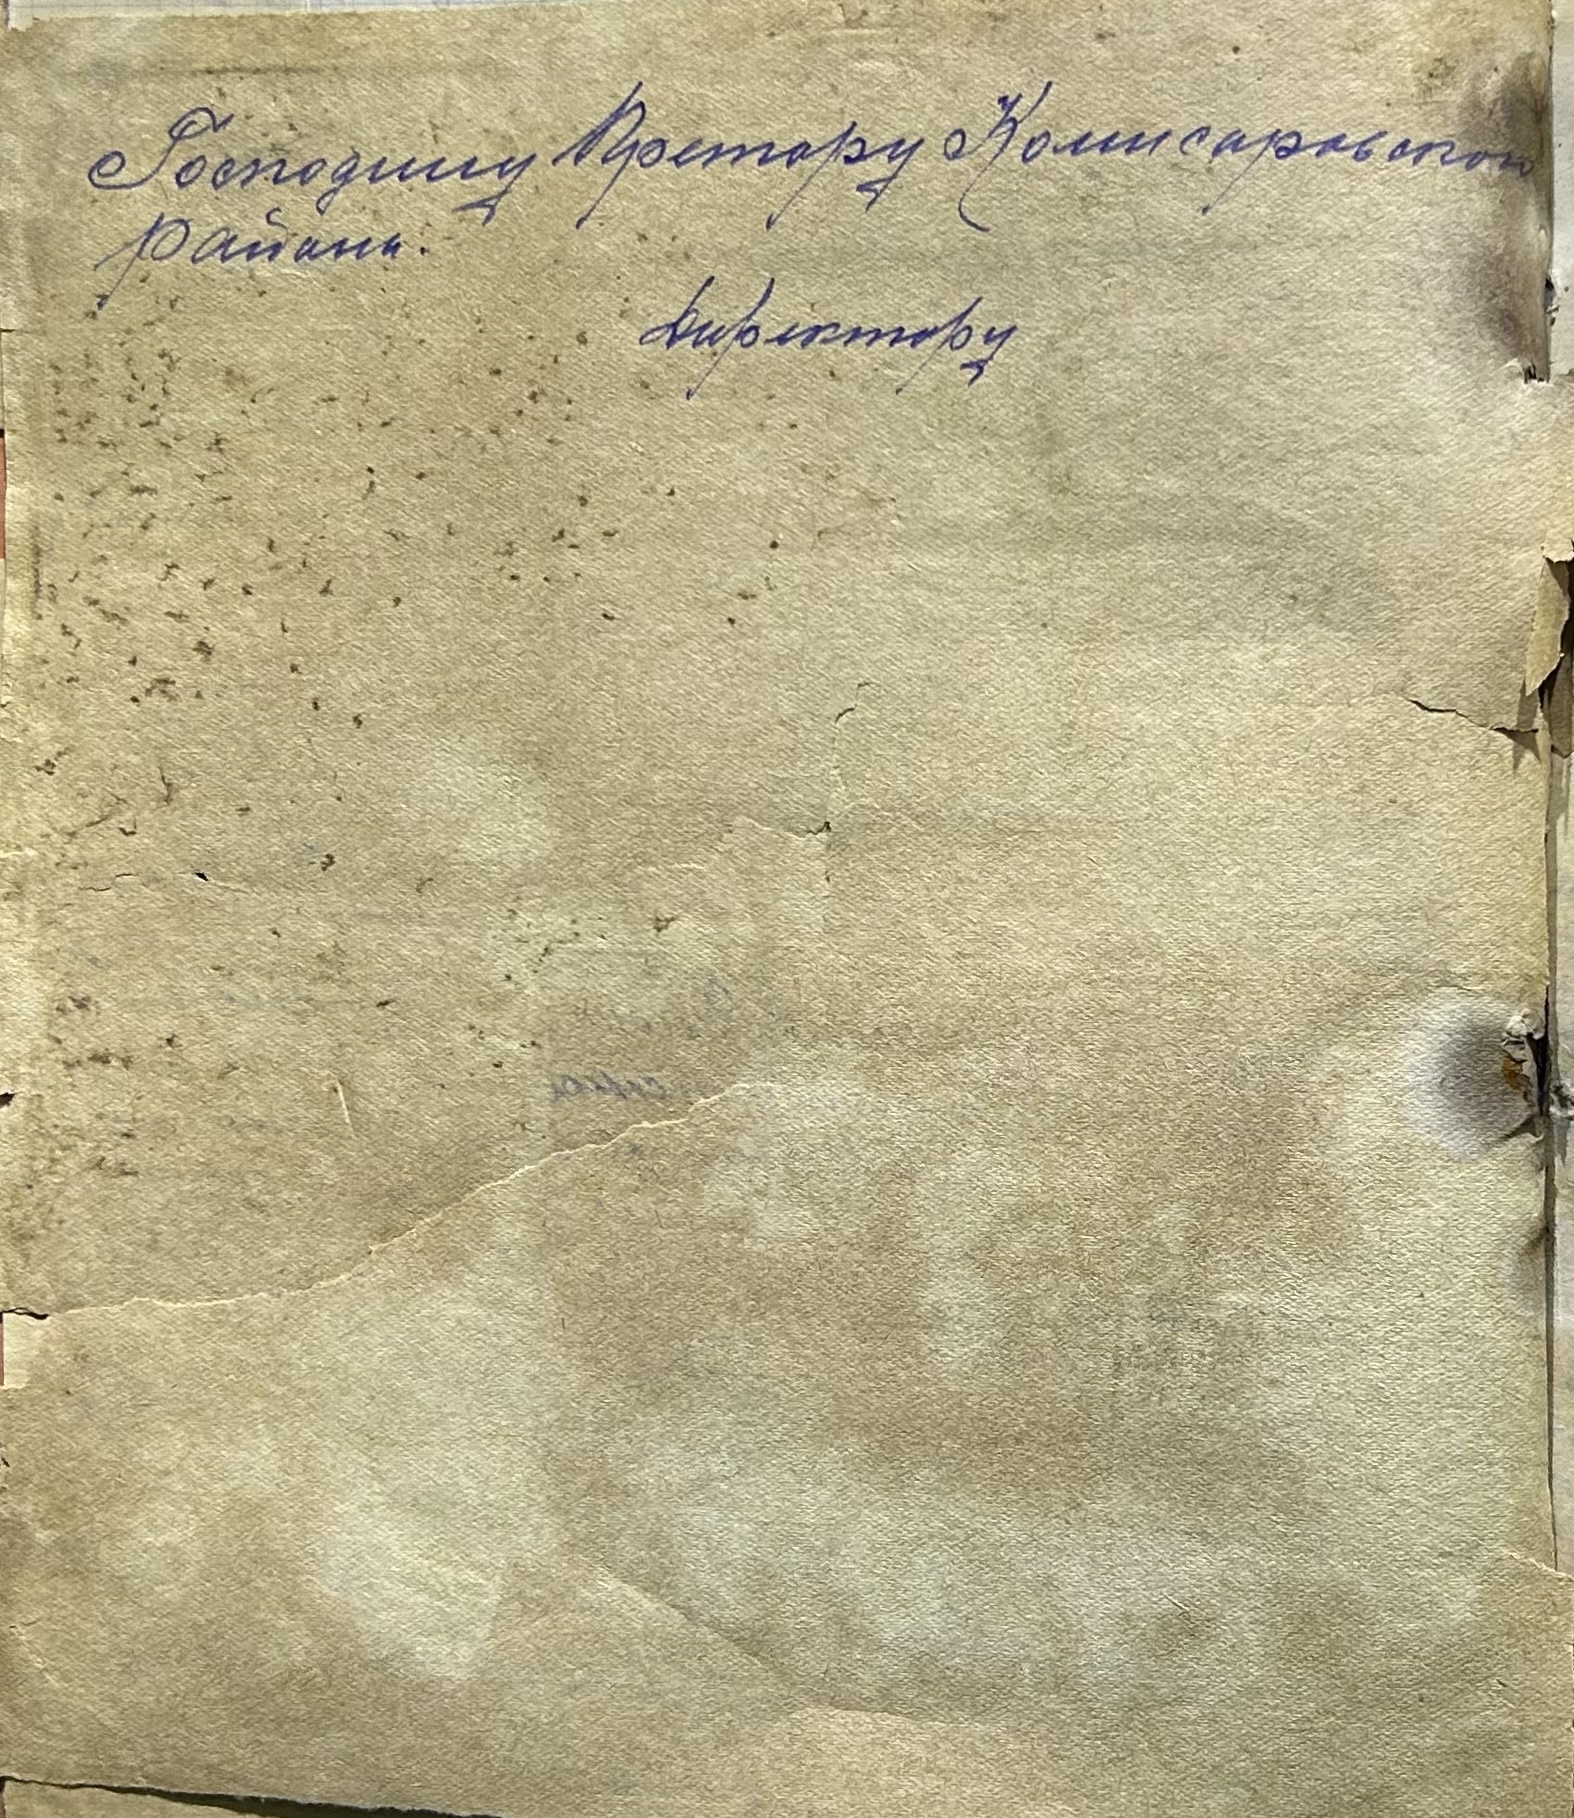 Господину Претору Комисаровского
района.
Директору